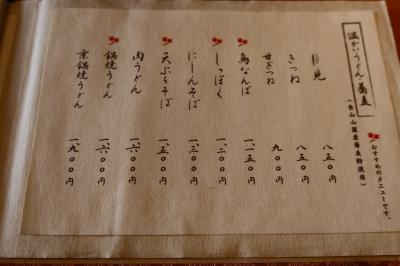 温かいうどん・蕎麦
おすすめのメニューです。
月見 八五〇円
きつね 八五〇円
甘ぎつね 九〇〇円
鳥なんば 一、一五〇円
しっぽく 一、二〇〇円
にしんそば 一、三〇〇円
天ぷらそば 一、五〇〇円
肉うどん 一、六〇〇円
鍋焼うどん 一、六〇〇円
京鍋焼うどん 一、九〇〇円